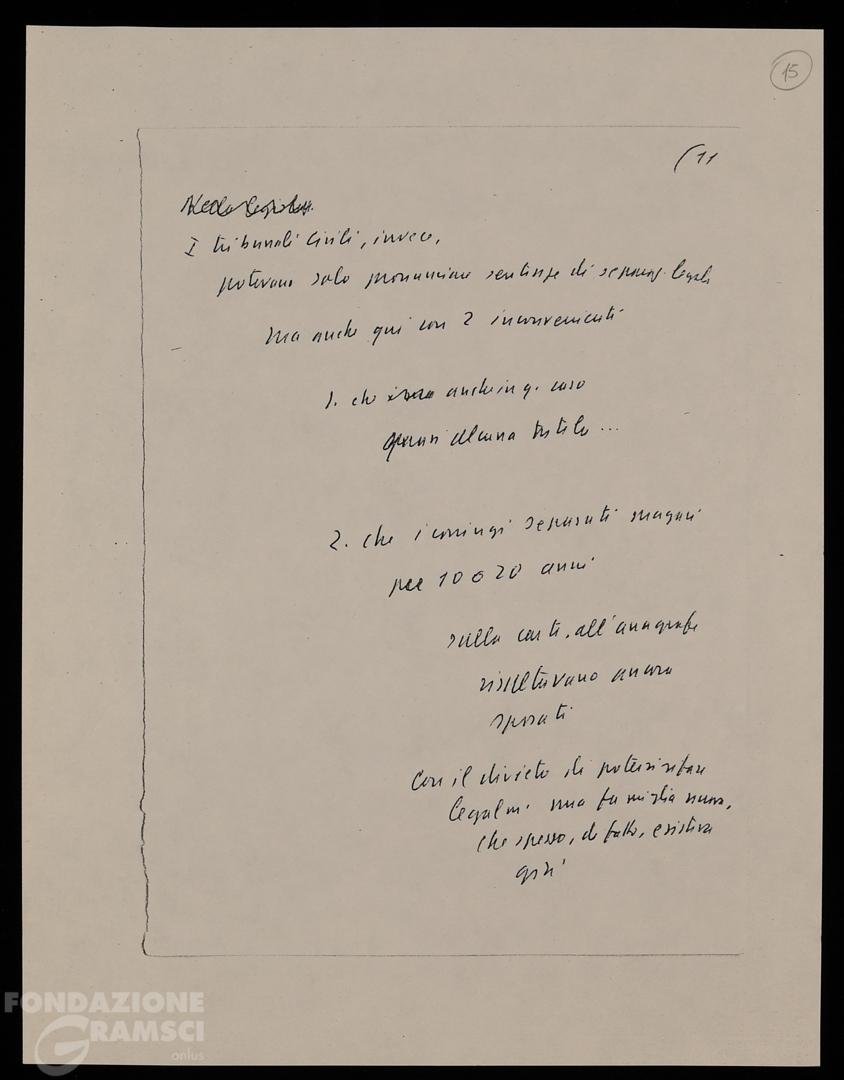 15
(11
I tribunali civili, invece,
potevano solo pronunciare sentenze di separaz. legali
Ma anche qui con 2 inconvenienti
1. che anche in q. caso
quasi alcuna tutela...
2. che i coniugi separati magari
per 10 o 20 anni
sulla carta, all'anagrafe
risultavano ancora
sposati
Con il divieto di potersi rifare
legalm. una famiglia nuova,
che spesso, di fatto, esisteva
già
FONDAZIONE
GRAMSCI
onlus